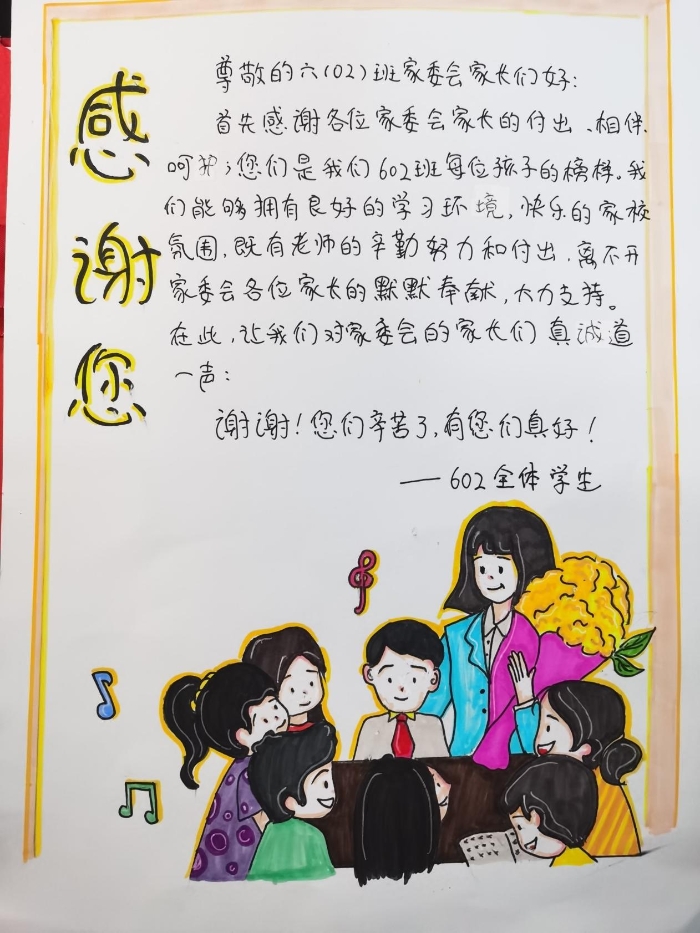 感谢您
尊敬的六(02)班家委会家长们好:
首先感谢各位家委会家长的付出、相伴、
呵护;您们是我们602班每位孩子的榜样。我
们能够拥有良好的学习环境,快乐的家校
氛围,既有老师的辛勤努力和付出,离不开
家委会各位家长的默默奉献,大力支持。
在此,让我们对家委会的家长们真诚道
一声:
谢谢!您们辛苦了,有您们真好!
——602全体学生